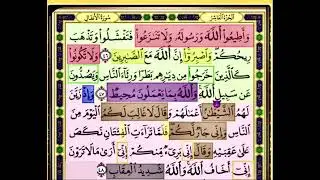 الجزء العاشر سورة الأنفال
وَأَطِيعُوا۟ ٱللَّهَ وَرَسُولَهُۥ وَلَا تَنَٰزَعُوا۟ فَتَفْشَلُوا۟ وَتَذْهَبَ
رِيحُكُمْ وَٱصْبِرُوٓا۟ إِنَّ ٱللَّهَ مَعَ ٱلصَّٰبِرِينَ ٤٦ وَلَا تَكُونُوا۟
كَٱلَّذِينَ خَرَجُوا۟ مِن دِيَٰرِهِم بَطَرًا وَرِئَآءَ ٱلنَّاسِ وَيَصُدُّونَ
عَن سَبِيلِ ٱللَّهِ وَٱللَّهُ بِمَا يَعْمَلُونَ مُحِيطٌ ٤٧ وَإِذْ زَيَّنَ
لَهُمُ ٱلشَّيْطَٰنُ أَعْمَٰلَهُمْ وَقَالَ لَا غَالِبَ لَكُمُ ٱلْيَوْمَ مِنَ
ٱلنَّاسِ وَإِنِّى جَارٌ لَّكُمْ فَلَمَّا تَرَآءَتِ ٱلْفِئَتَانِ نَكَصَ
عَلَىٰ عَقِبَيْهِ وَقَالَ إِنِّى بَرِىٓءٌ مِّنكُمْ إِنِّىٓ أَرَىٰ مَا لَا تَرَوْنَ
إِنِّىٓ أَخَافُ ٱللَّهَ وَٱللَّهُ شَدِيدُ ٱلْعِقَابِ ٤٨